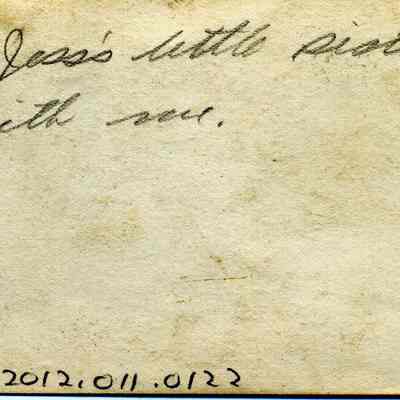 Jess's little sist
ith me.
2012.011.0122